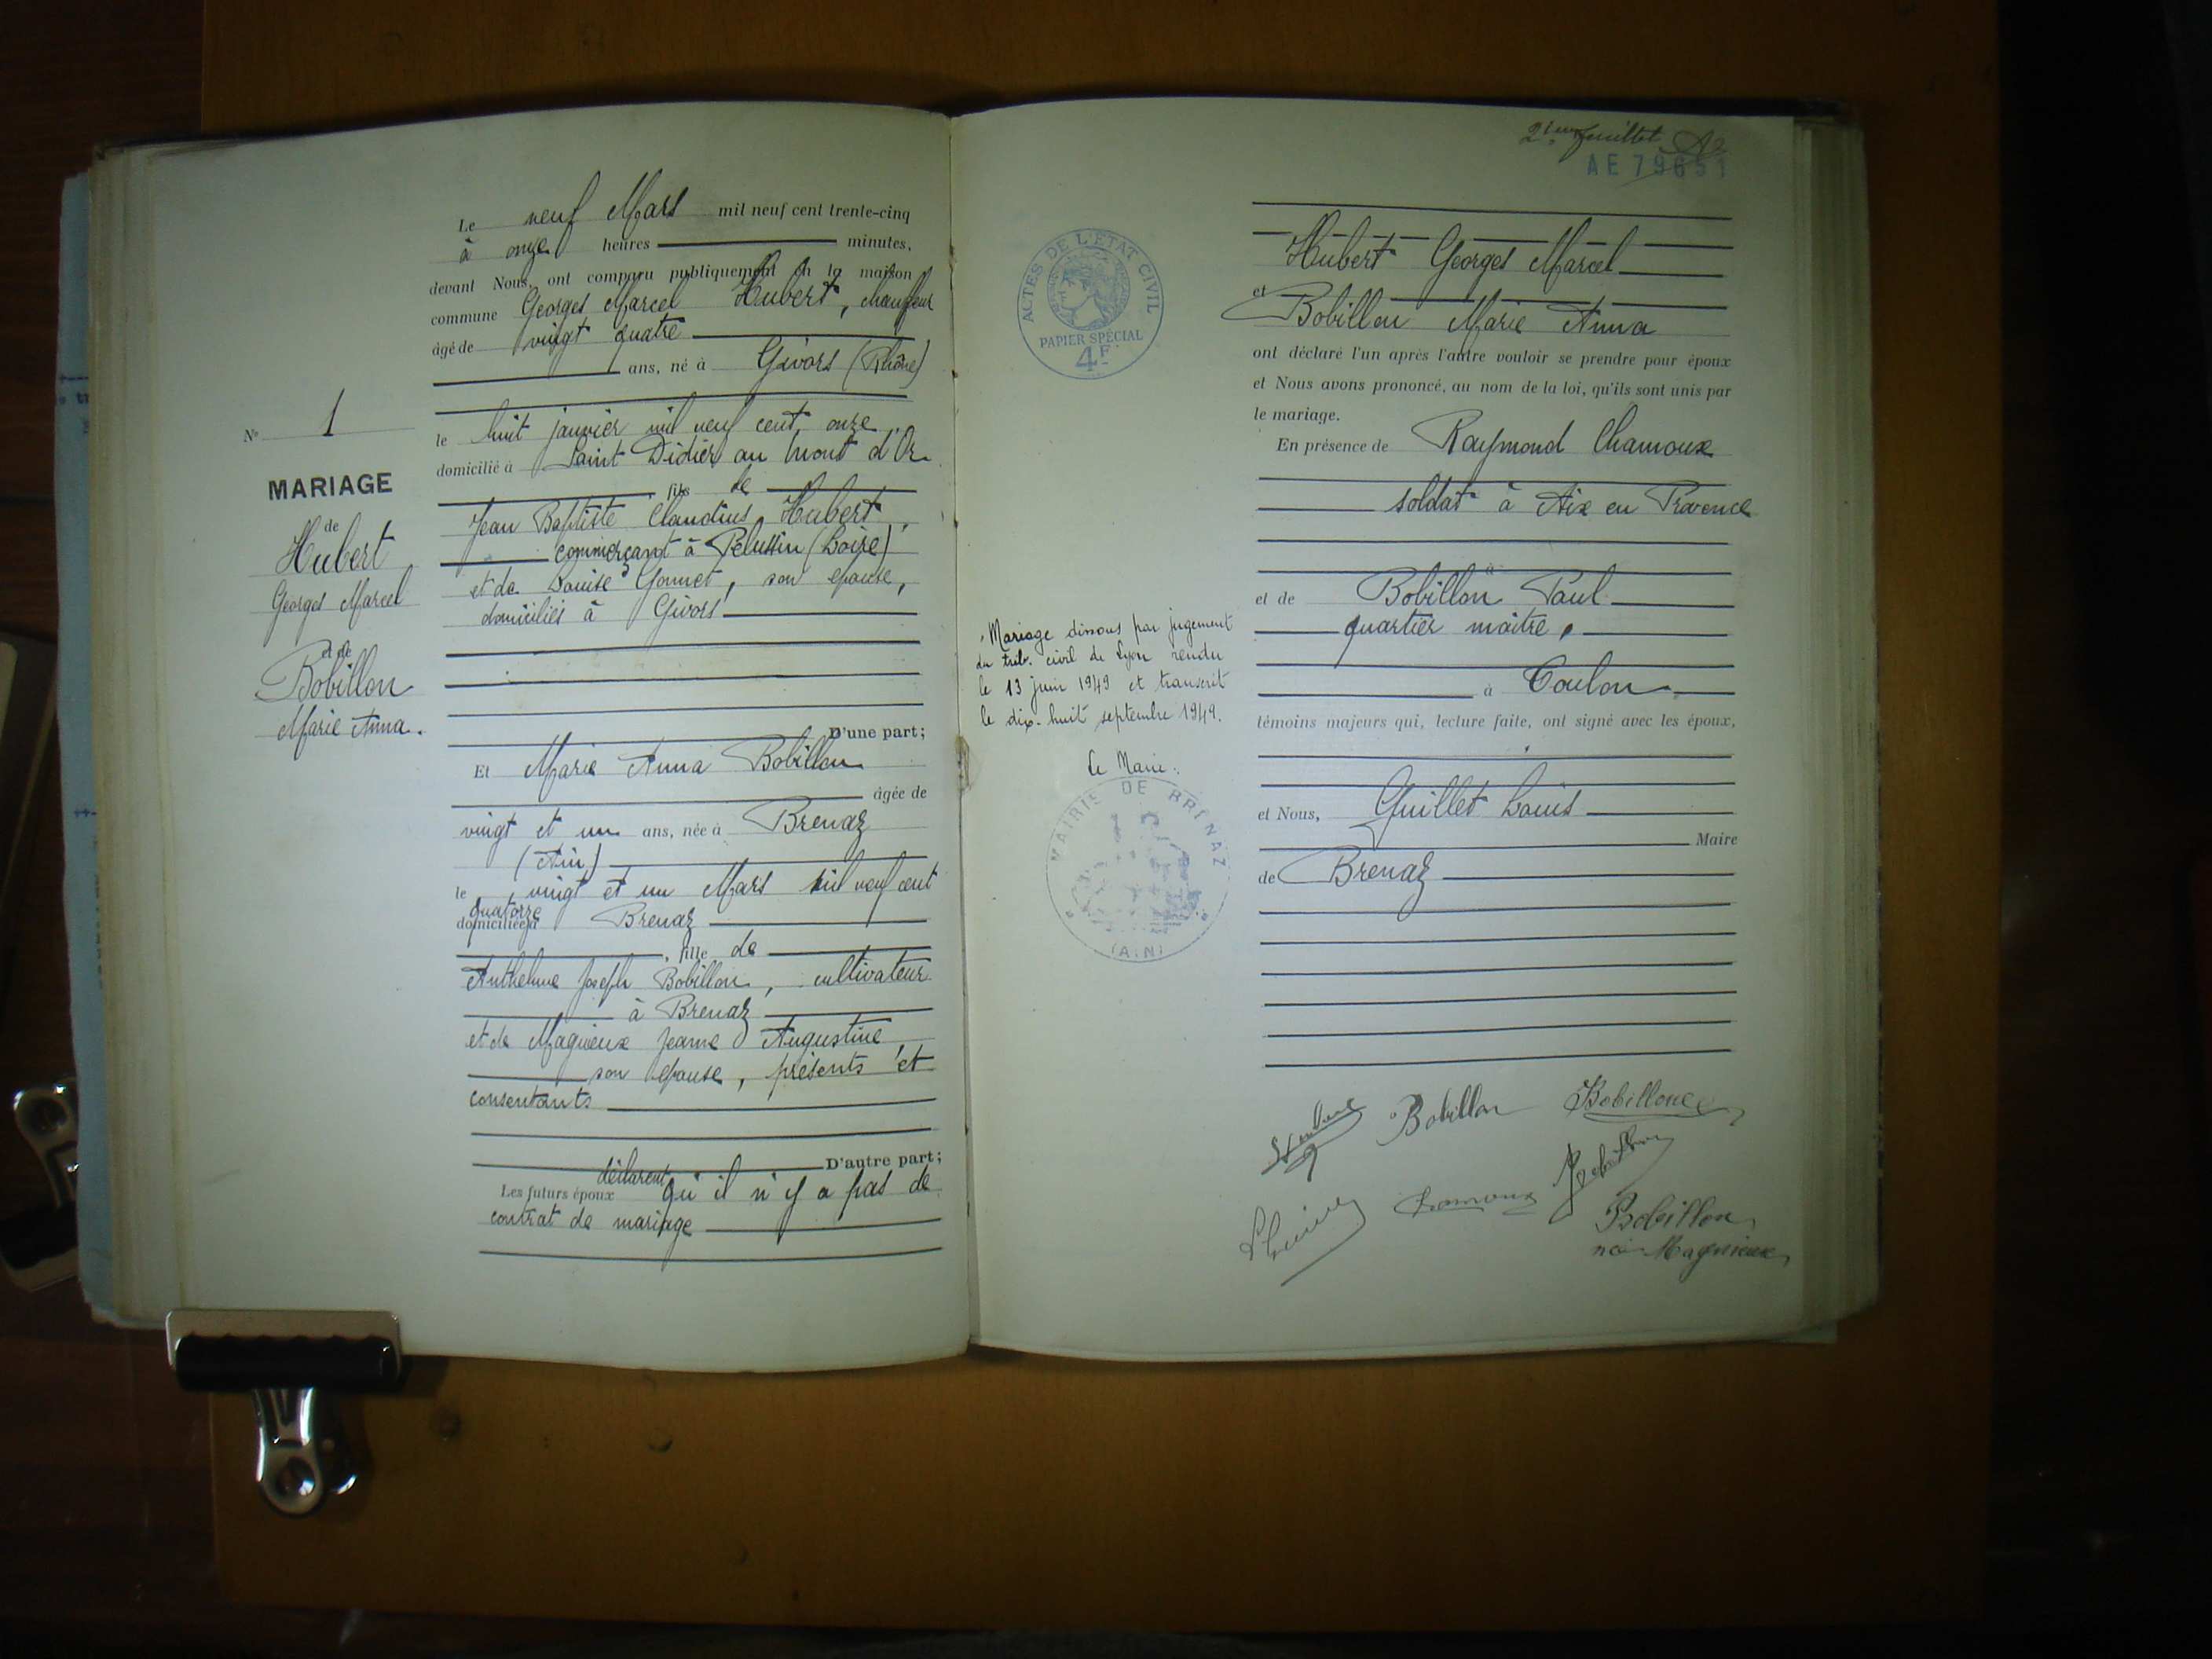 Le neuf Mars mil neuf cent trente-cinq
à onze heures minutes,
devant Nous, ont comparu publiquement en la maison
commune Georges Marcel Hubert, chauffeur
âgé de vingt quatre
ans, né à Givors (Rhône)
le huit janvier mil neuf cent onze
domicilié à Saint Didier au Mont d'Or
fils de
Jean Baptiste Claudius Hubert,
commerçant à Pélussin (Loire)
et de Louise Gonnet, son épouse,
domiciliés à Givors
D'une part;
Et Marie Anna Bobillon
âgée de
vingt et un ans, née à Brenaz
(Ain)
le vingt et un Mars mil neuf cent
quatorze
domiciliée à Brenaz
, fille de
Anthelme Joseph Bobillon, cultivateur
à Brenaz
et de Magnieux Jeanne Augustine
son épouse, présents et
consentants
D'autre part;
Les futurs époux déclarent qu'il n'y a pas de
contrat de mariage
N° 1
MARIAGE
de
Hubert
Georges Marcel
et de
Bobillon
Marie Anna.
2ème feuillet
AE 79651
ACTES DE L'ÉTAT CIVIL
PAPIER SPÉCIAL
4F
Hubert Georges Marcel
et
Bobillon Marie Anna
ont déclaré l'un après l'autre vouloir se prendre pour époux
et Nous avons prononcé, au nom de la loi, qu'ils sont unis par
le mariage.
En présence de Raymond Chamoux
soldat à Aix en Provence
à
et de Bobillon Paul
quartier maître,
à Toulon
témoins majeurs qui, lecture faite, ont signé avec les époux,
et Nous, Guillet Louis
Maire
de Brenaz
Mariage dissous par jugement
du trib. civil de Lyon rendu
le 13 juin 1949 et transcrit
le dix-huit septembre 1949.
Le Maire:
MAIRIE DE BRENAZ
(AIN)
Bobillon
Bobillon
née Magnieux